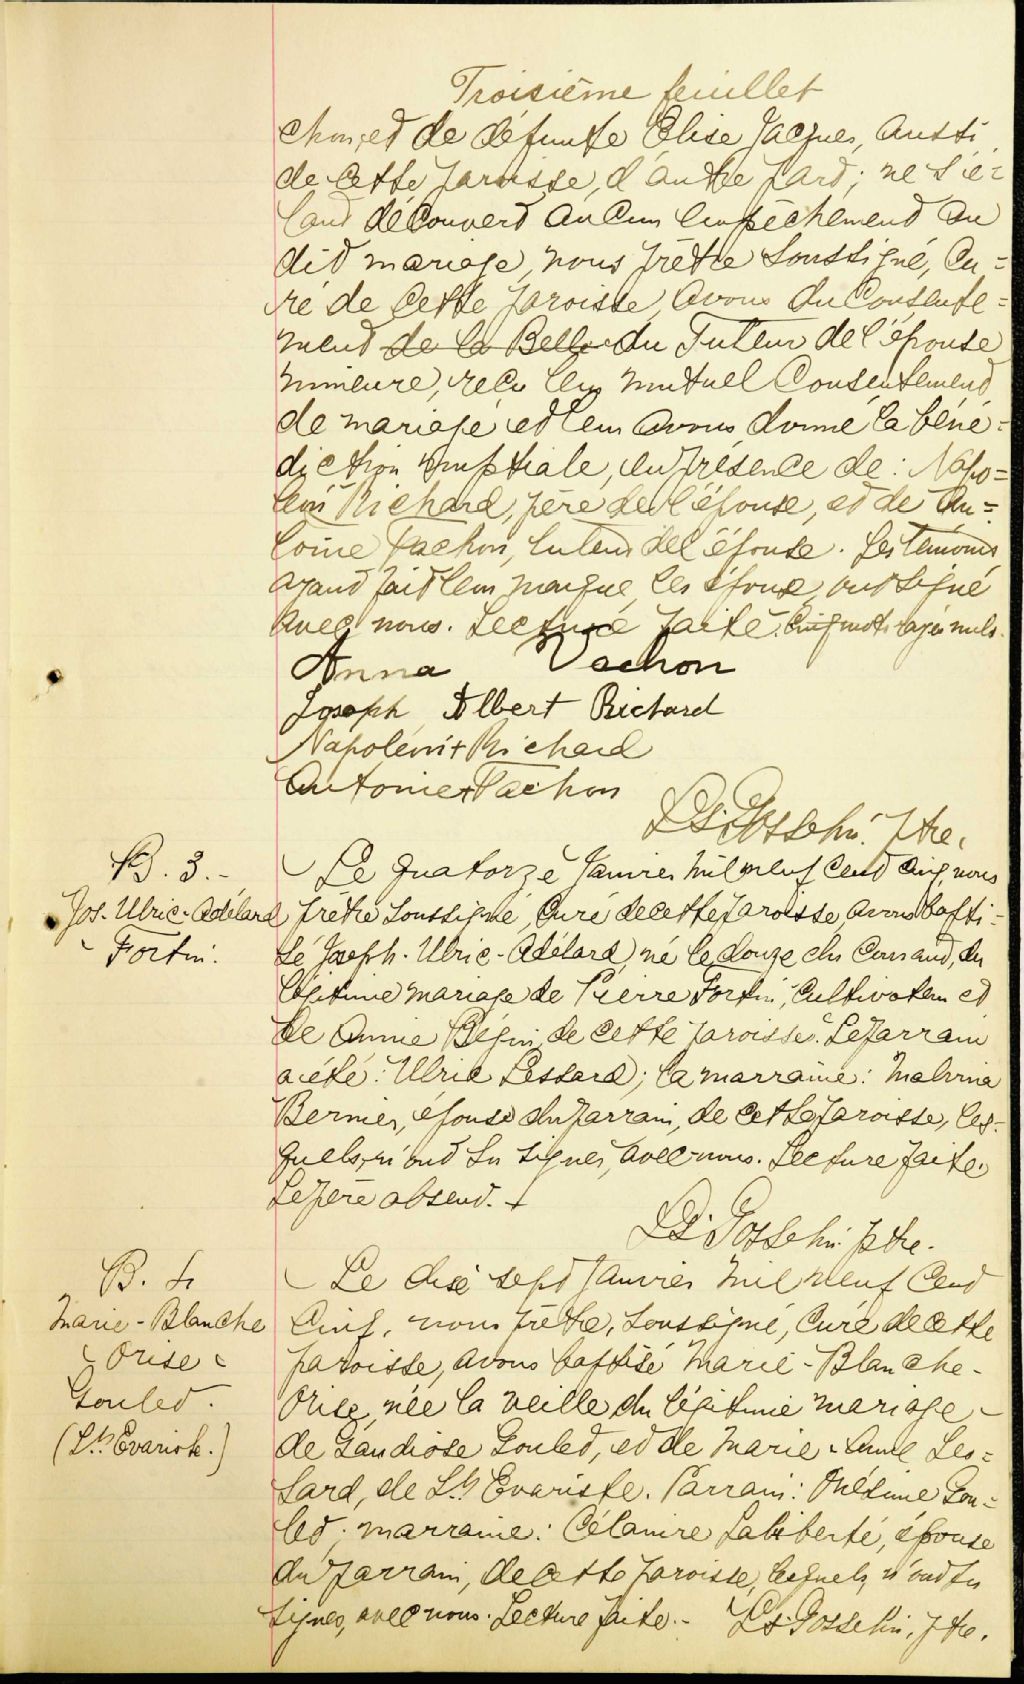 Troisième feuillet
chon, et de défunte Elise Jacques, aussi
de cette paroisse, d'autre part; ne s'é=
tant découvert aucun empêchement au
dit mariage, nous prêtre soussigné, cu=
ré de cette paroisse, avons du consente=
ment de la Belle du Tuteur de l'épouse
mineure, reçu leur mutuel consentement
de mariage et leur avons donné la béné=
diction nuptiale, en présence de: Napo=
léon Richard, père de l'épouse, et de An=
toine Vachon, tuteur de l'épouse. Les témoins
ayant fait leur marque, les époux ont signé
avec nous. Lecture faite. Cinq mots rayés nuls.
Anna Vachon
Joseph Albert Richard
Napoléon + Richard
Antoine + Vachon
Ls. Gosselin. ptre.
B. 3.-
Jos-Ulric-Adélard
Fortin.
Le quatorze Janvier mil neuf cent cinq, nous
prêtre soussigné, curé de cette paroisse, avons bapti-
sé Joseph-Ulric-Adélard, né le douze du courant, du
légitime mariage de Pierre Fortin, cultivateur et
de Annie Bégin, de cette paroisse. Le parrain
a été: Ulric Lessard; la marraine: Malvina
Bernier, épouse du parrain, de cette paroisse, les-
quels, n'ont su signer, avec nous. Lecture faite.
Le père absent. +
Ls. Gosselin ptre.
B. 4
Marie-Blanche
Orise
Goulet.
(St. Evariste.)
Le dix sept Janvier mil neuf cent
cinq, nous prêtre, soussigné, curé de cette
paroisse, avons baptisé Marie-Blanche-
Orise, née la veille du légitime mariage
de Gaudiose Goulet, et de Marie-Anne Les=
sard, de St. Evariste. Parrain: Onésime Gou=
let; marraine: Célanire Laliberté, épouse
du parrain, de cette paroisse, lesquels, n'ont su
signer, avec nous. Lecture faite.- Ls. Gosselin. ptre.